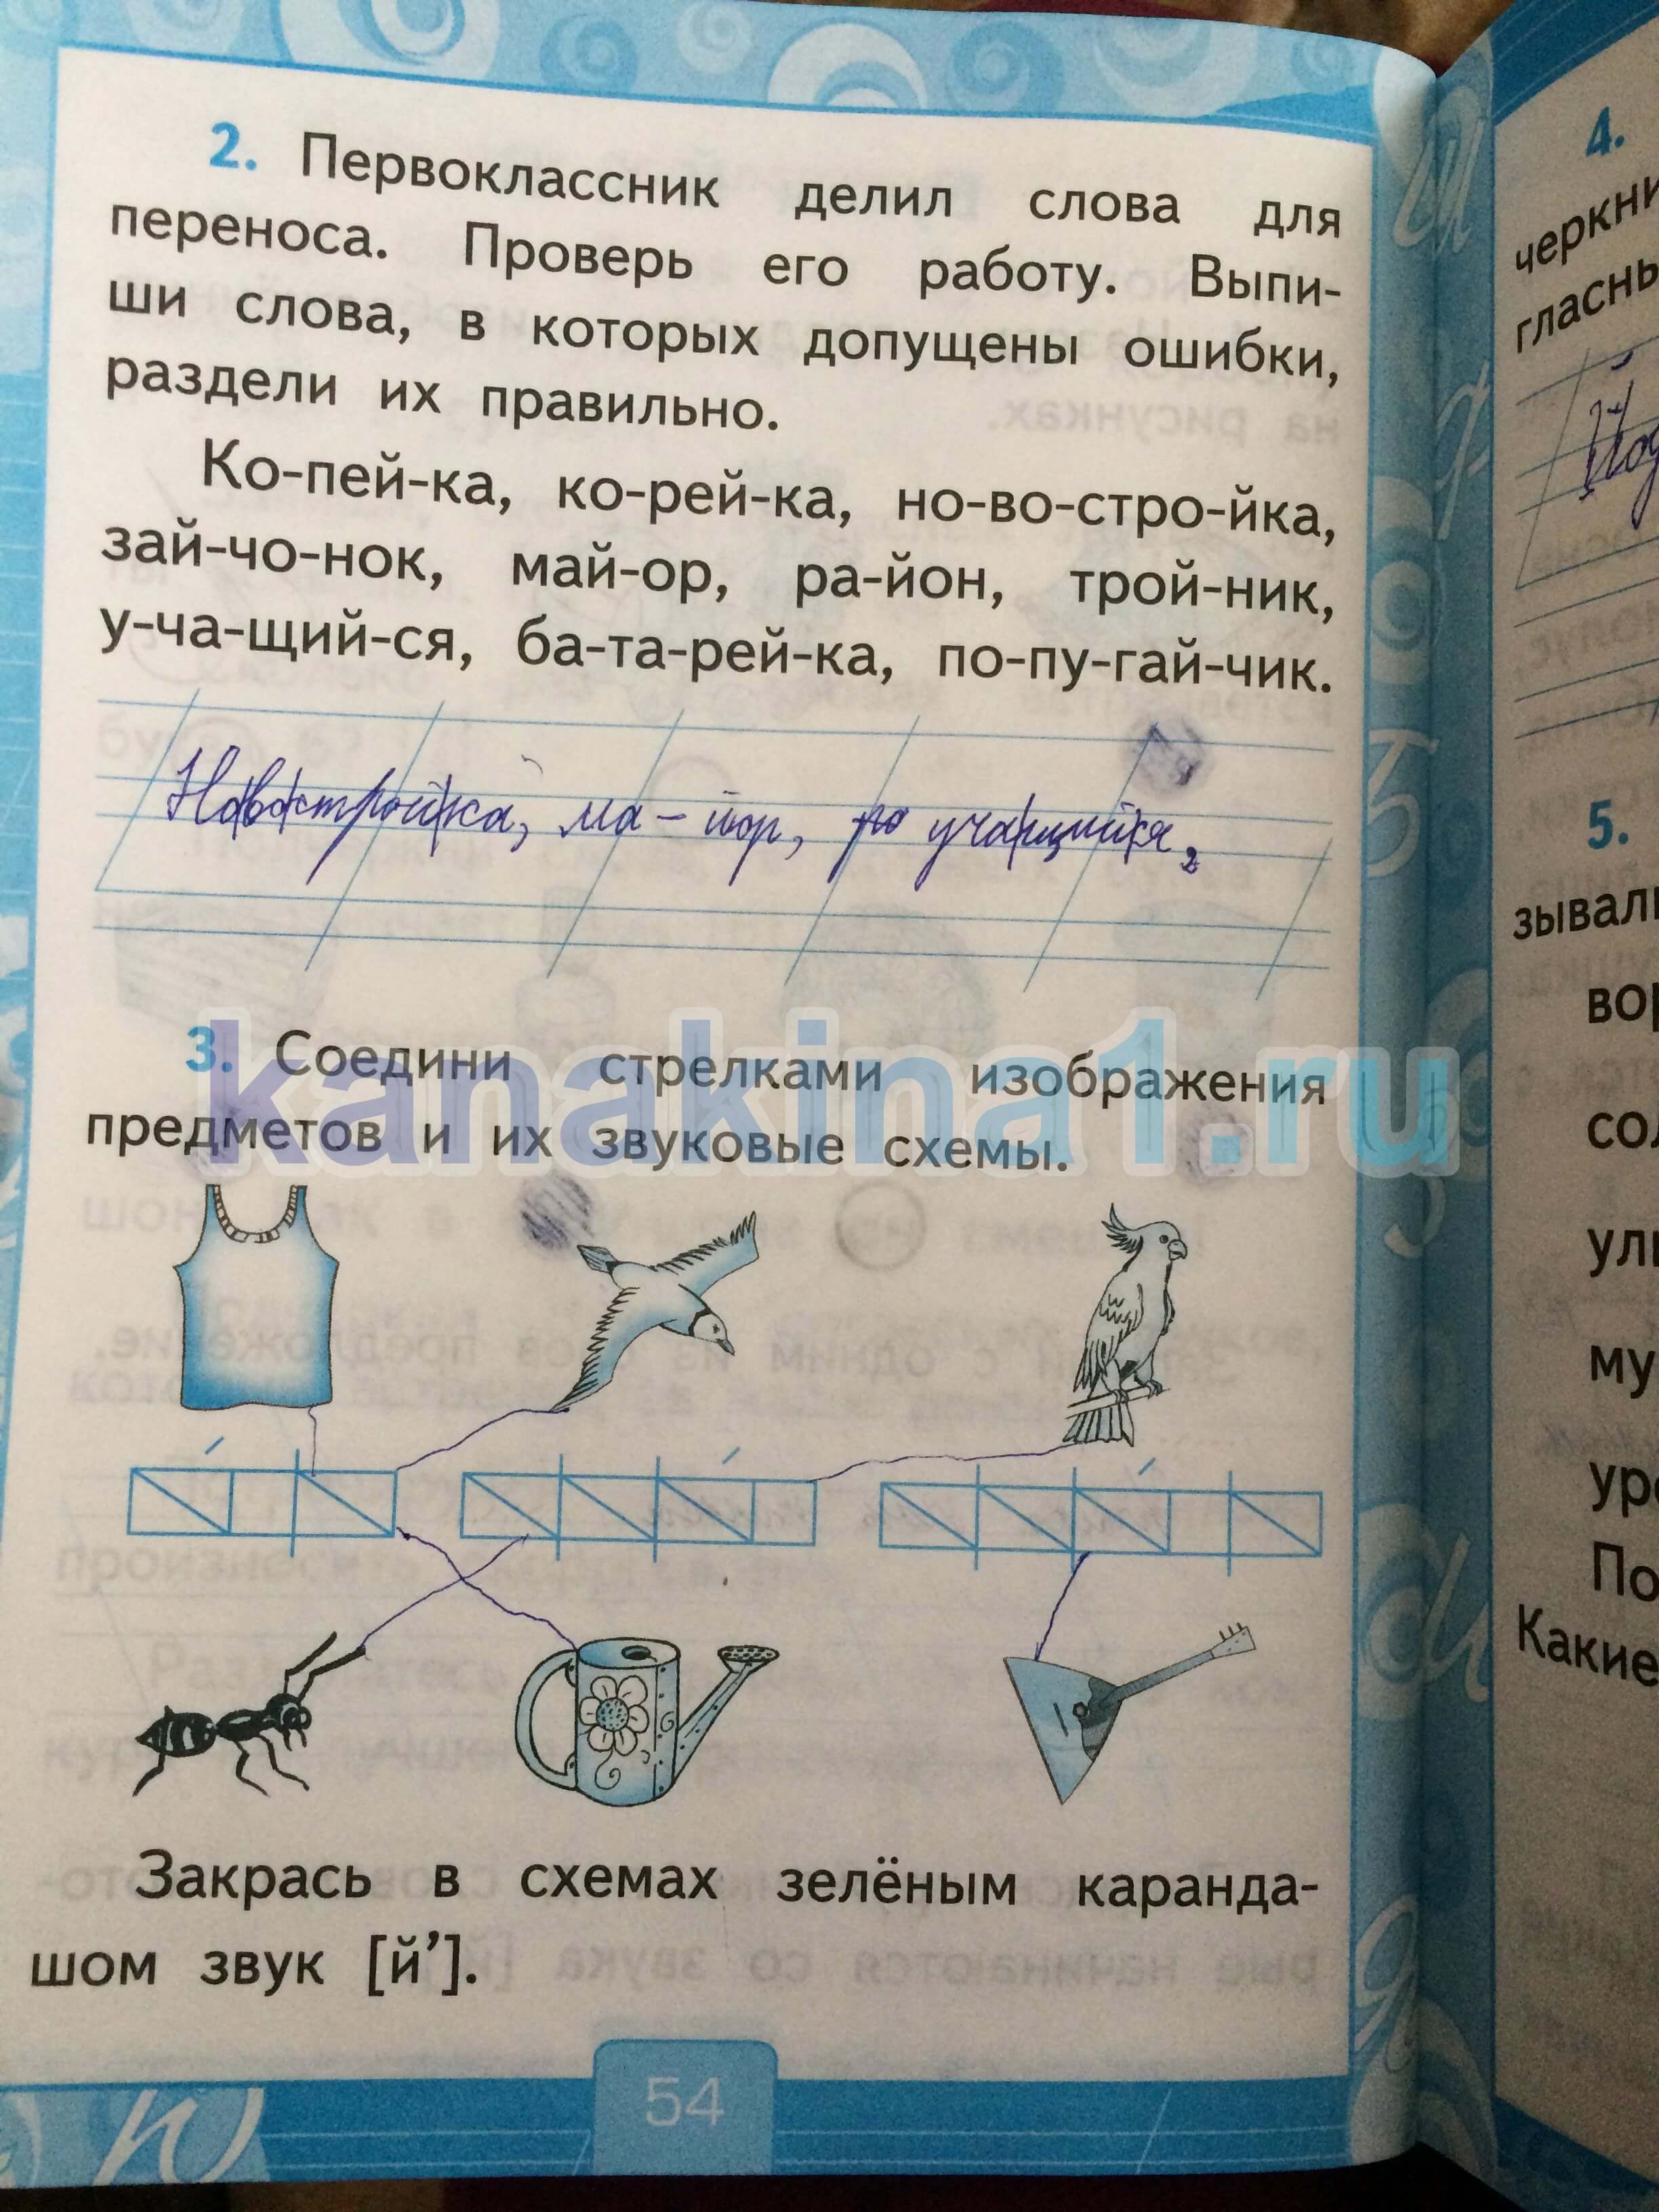 2. Первоклассник делил слова для
переноса. Проверь его работу. Выпи-
ши слова, в которых допущены ошибки,
раздели их правильно.
Ко-пей-ка, ко-рей-ка, но-во-стро-йка,
зай-чо-нок, май-ор, ра-йон, трой-ник,
у-ча-щий-ся, ба-та-рей-ка, по-пу-гай-чик.
Новостройка, ма-йор, учащийся,
3. Соедини стрелками изображения
предметов и их звуковые схемы.
kanakina1.ru
Закрась в схемах зелёным каранда-
шом звук [й’].
54
4.
черкни
гласны
5.
зывали
вор
сол
ули
му
уро
По
Какие